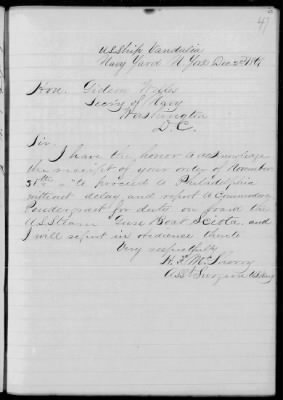 47
U.S. Ship Vandalia
Navy Yard N. York Dec 2nd
Hon. Gideon Welles
Secry of Navy
Washington
D.C.
Sir
I have the honor to acknowledge
the receipt of your order of November
"to proceed to Philadelphia
without delay and report to Commodore
Pendergrast for duty on board the
U.S. Steam Gun Boat Sciota" and
I will report in obedience thereto
Very respectfully
Ass Surgeon